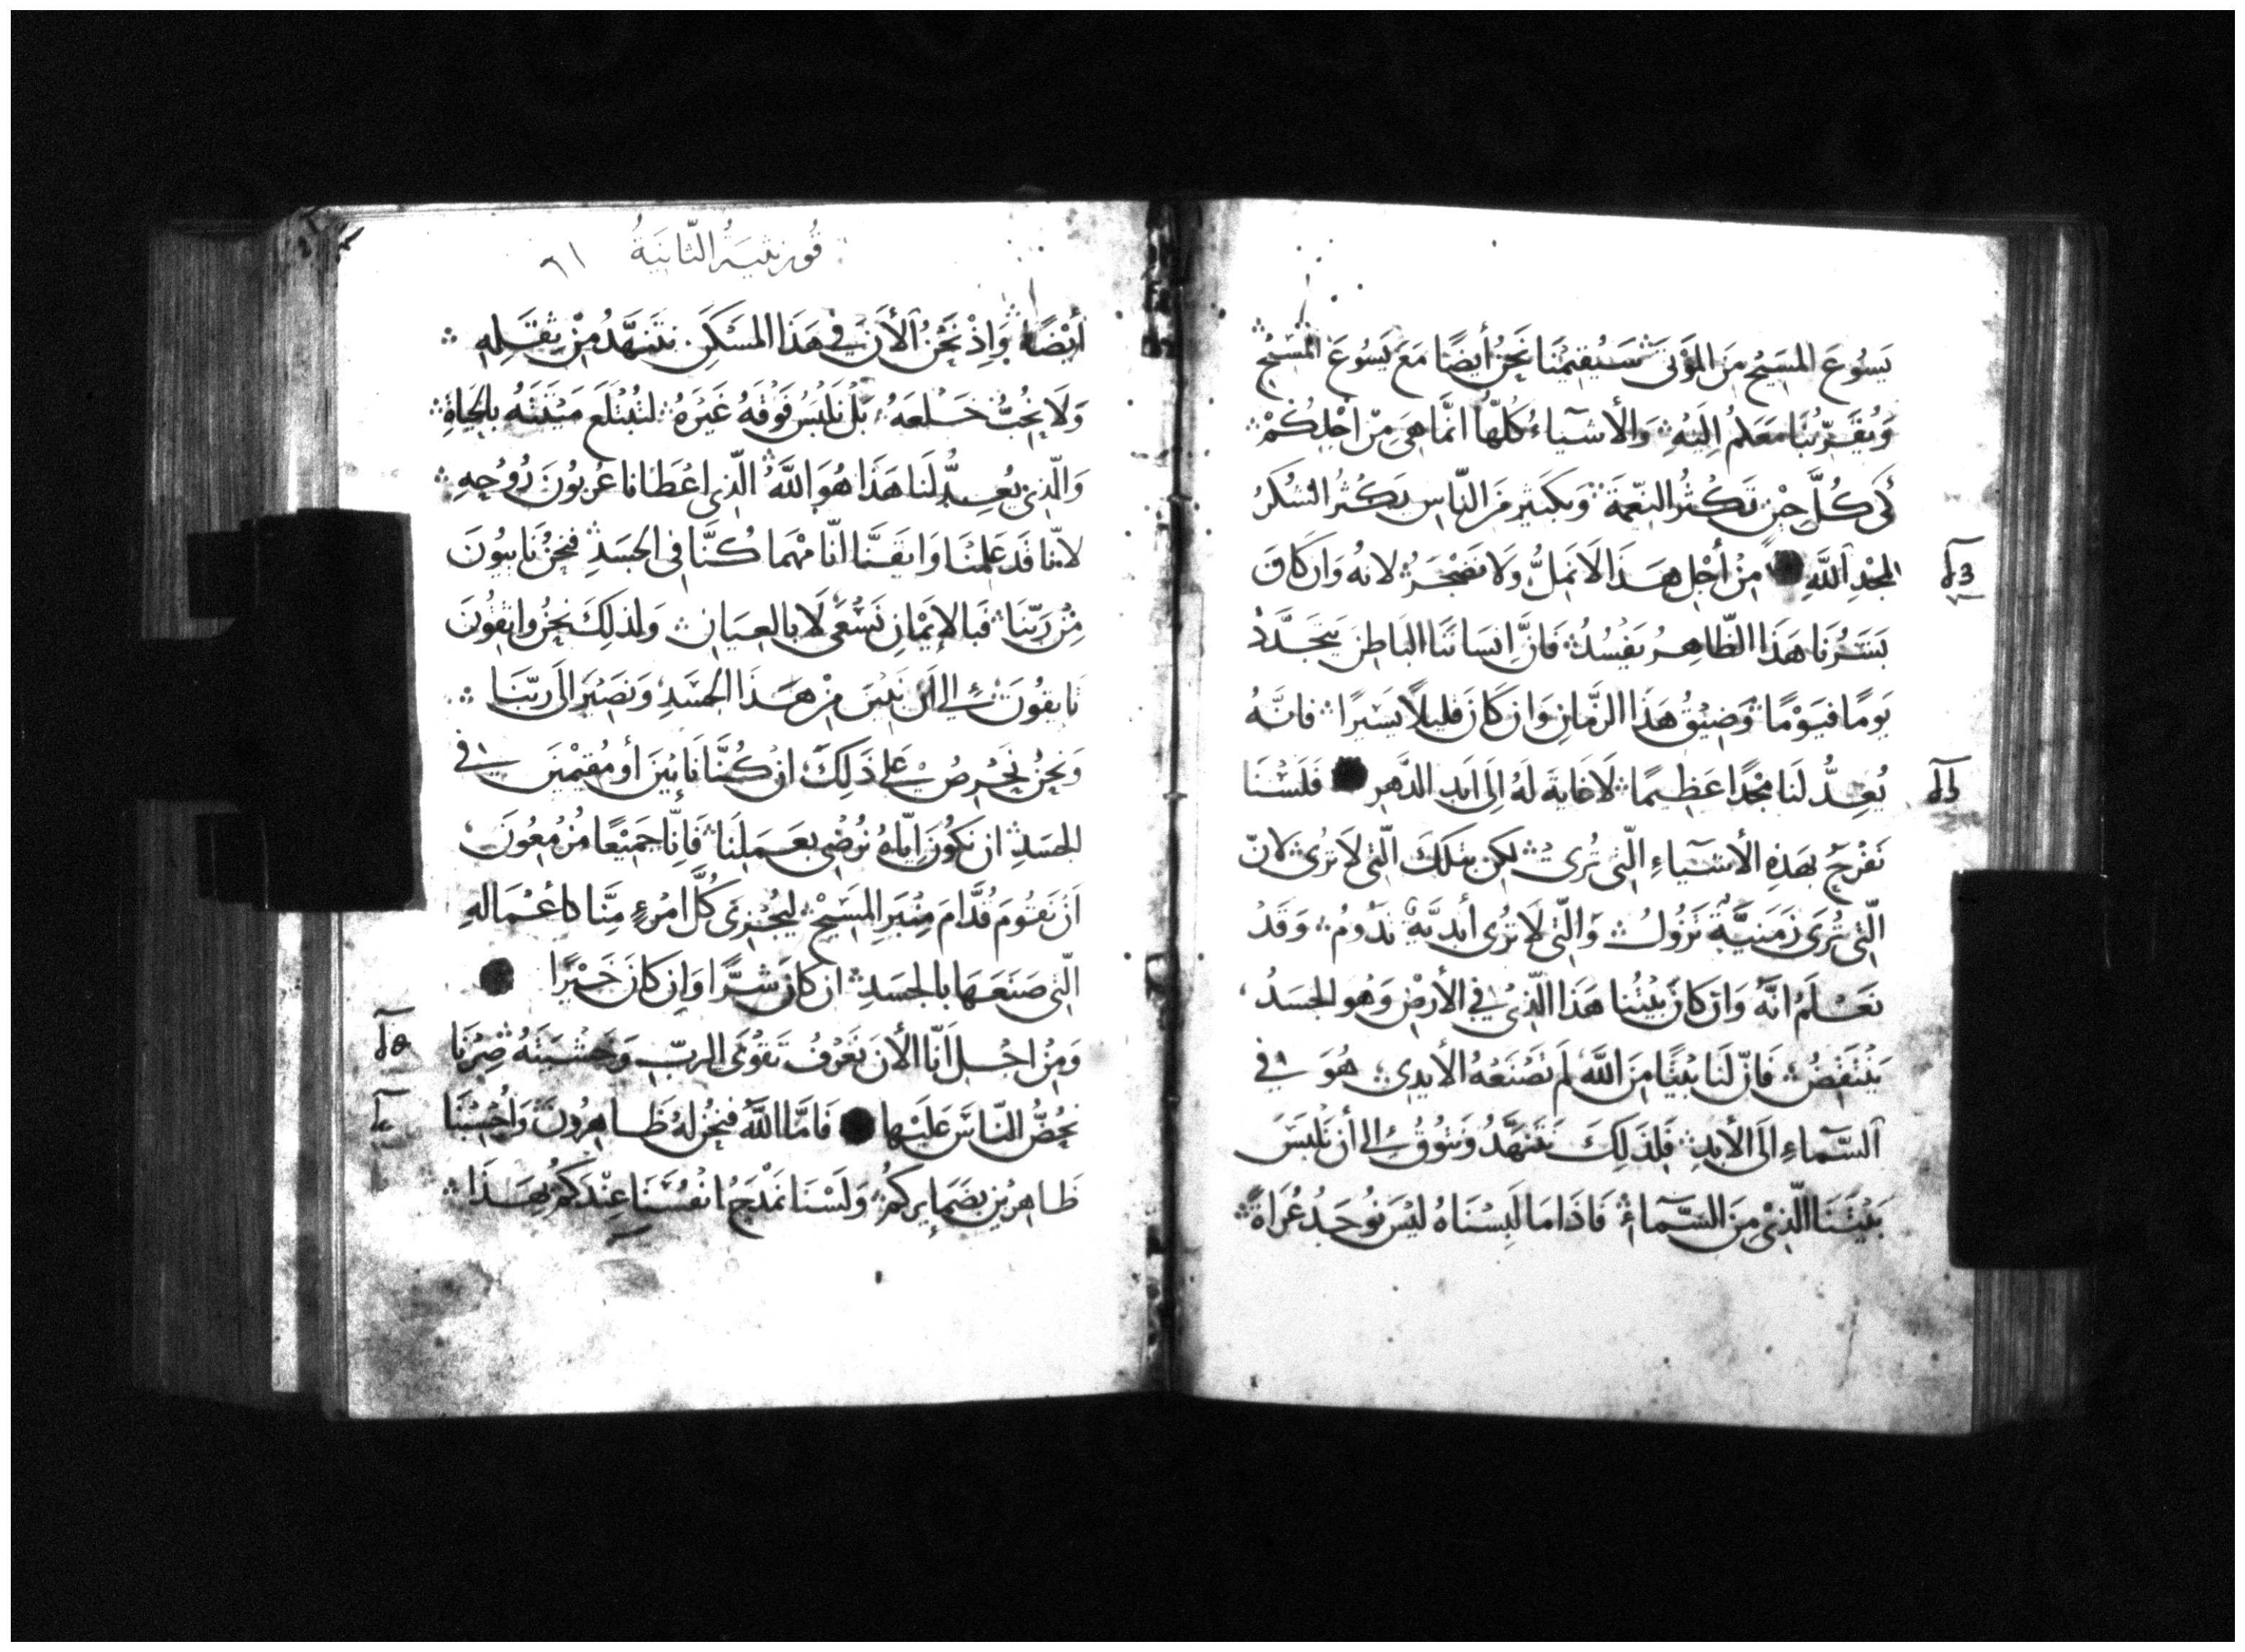 يَسُوعَ المَسِيحِ مِنَ المَوْتَى سَيُقِيمُنَا نَحنُ أيضًا مَعَ يَسُوعَ المَسِيْحِ
وَيُقَرِّبُنَا مَعَكُمْ اِلَيْهِ وَالأشيَاءُ كُلّهَا اِنَّمَا هِيَ مِنْ أجْلِكُمْ
لِكَي كُلَّ حِيْنٍ تَكثُرُ النِعْمَة وَبِكَثِيرٍ مِنَ النّاسِ يَكثُرُ الشُكرُ
لمجْدِ اَللَّهِ مِنْ أجْلِ هَذَا لَا نَمَلُّ وَلَا نَضْجَرُ لانهُ وَان كَانَ
بَشَرُنَا هَذَا الظّاهِرُ يَفْسُدُ فَانَّ اِنسَانَنَا البَاطِنَ يَتجَدَّدُ
يَومًا فيَوْمًا وَضِيْقُ هَذَا الزَّمَانِ وَان كَانَ قَلِيلًا يَسِيْرًا فانَّهُ
يُعِدُّ لَنَا مجْدًا عَظِيمًا لَا غَايَةَ لَهُ اِلَى اَبَدِ الدَّهرِ فَلَسْنَا
نَفْرَحُ بهَذِهِ الأشيَاءِ الّتي تُرى لكِن بتلكَ الّتي لَا تُرَى لانّ
الّتي تُرَى زَمَنِيَّةٌ تَزُولُ وَالّتي لَا تُرَى أبَدِيَّة تَدُومُ وَقَدْ
نَعْلَمُ انَّهُ وَان كانَ بَيْتُنا هَذَا الّذِي في الأرْضِ وَهُو الجسَدُ
يَنْتَقِضُ فَانّ لَنَا بَيْتًا مِنَ اللَّهِ لَم تَصْنَعْهُ الأيدِي هُوَ في
اَلسَّمَاءِ الَى الأبَدِ فَلِذَلِكَ نَتَنَهَّدُ وَنتُوقُ اِلى أن نَلْبَسَ
بَيْتَنَا الّذِيْ مِنَ السَّمَاءِ فَاذَا مَا لَبِسْنَاهُ لَيْسَ نُوجَدُ عُرَاةً
قُورنثِيَةُ الثّانِيَةُ ٦١
أيْضًا وَاِذْ نَحْنُ اَلأنَ في هَذَا المَسْكَنِ نتَنَهَّدُ مِنْ ثِقَلِهِ
وَلَا نُحِبُّ خَلْعَهُ بَلْ نَلبَسُ فَوْقَهُ غَيْرَهُ لتُبْتَلَعَ مَيْتَتَهُ بالحَيَاةِ
وَالّذِي يُعِدُّ لَنَا هَذَا هُوَ اللَّهُ الّذِي اعْطَانَا عُربُونَ رُوُحِهِ
لأنّنا قَد عَلِمْنَا وَايقَنَّا انّا مَهْمَا كُنَّا في الجسَدِ فَنحنُ نَايبُونَ
مِنْ رَبّنَا فَبالاِيْمَانِ نَسْعَى لَا بالعِيَانِ وَلِذَلِكَ نَحْنُ وَاثِقُونَ
تَايقُونَ اِلى اَن نَبِيْنَ مِنْ هَذَا الجَسَدِ وَنَصِيْرَ الَى رَبّنَا
وَنَحْنُ نَحْرِصُ عَلى ذَلِكَ ان كُنَّا نَائِبِيْنَ أو مُقِيْمْينَ في
الجسَدِ ان نَكُونَ اِيّاهُ نُرْضِي بعَمَلِنَا فَاِنّا جَمِيْعًا مُزْمِعُونَ
اَنْ نَقُومَ قُدَّامَ مِنْبَرِ المَسِيْحِ ليُجْزَى كُلَّ امْرءٍ مِنَّا كاعْمَالهِ
الّتي صَنَعَهَا بالجسَدِ ان كانَ شَرًّا وَاِن كانَ خَيْرًا
وَمِنْ اجْلِ اَنّا الأنَ نَعْرفُ تَقْوَى الربّ وَخَشْيَتَهُ صِرْنَا
نَحُضُّ النّاسَ عَلَيْهَا فَامَّا اللَّهُ فنحْنُ لهُ ظَاهِرُونَ وَاُحْسِبُنَا
ظَاهِرِيْنَ بضَمَايركُمْ وَلَسْنَا نَمْدَحُ انفُسَنَا عِنْدَكُمْ بِهَذَا